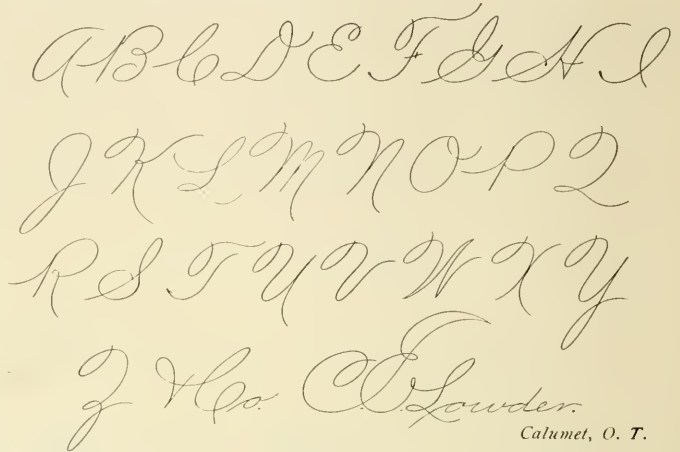 A B C D E F G H I
J K L M N O P Q
R S T U V W X Y
Z & Co. C. E. Lowder.
Calumet, O. T.